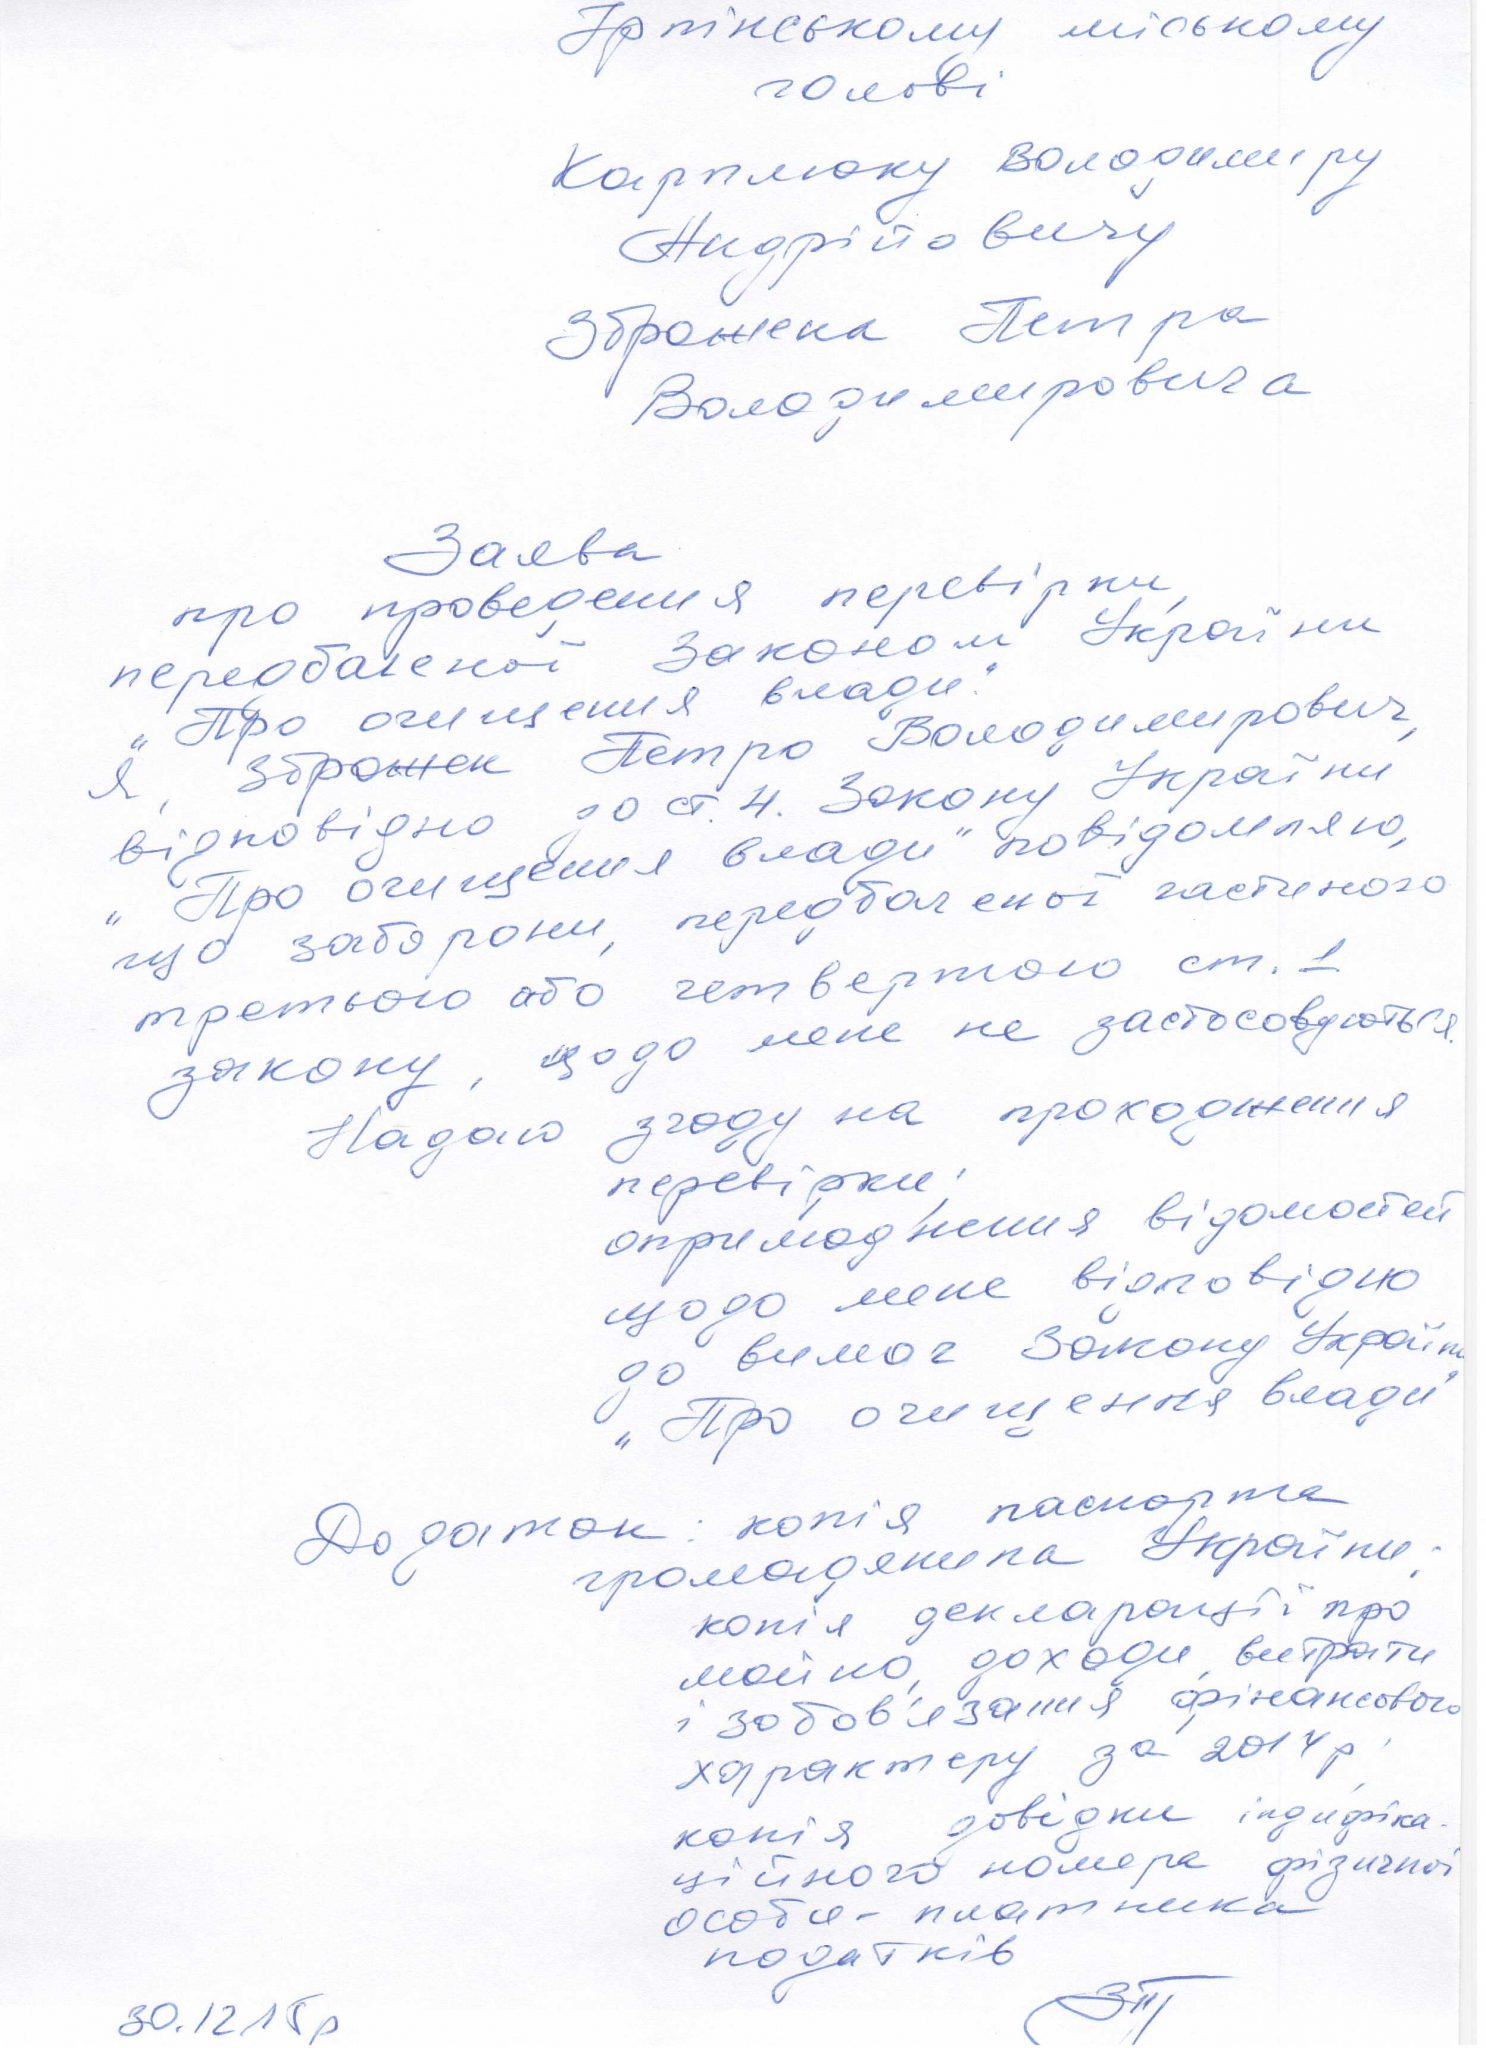 Ірпінському міському
голові
Карплюку Володимиру
Андрійовичу
Зброжека Петра
Володимировича
Заява
про проведення перевірки,
передбаченої Законом України
„Про очищення влади".
Я, Зброжек Петро Володимирович,
відповідно до ст. 4. Закону України
„Про очищення влади" повідомляю,
що заборони, передбаченої частиною
третьою або четвертою ст. 1
закону, щодо мене не застосовуються.
Надаю згоду на проходження
перевірки;
оприлюднення відомостей
щодо мене відповідно
до вимог Закону України
„Про очищення влади"
Додаток: копія паспорта
громадянина України;
копія декларації про
майно, доходи, витрати
і зобов'язання фінансового
характеру за 2014 р;
копія довідки індифіка-
ційного номера фізичної
особи - платника
податків
30.12.15р